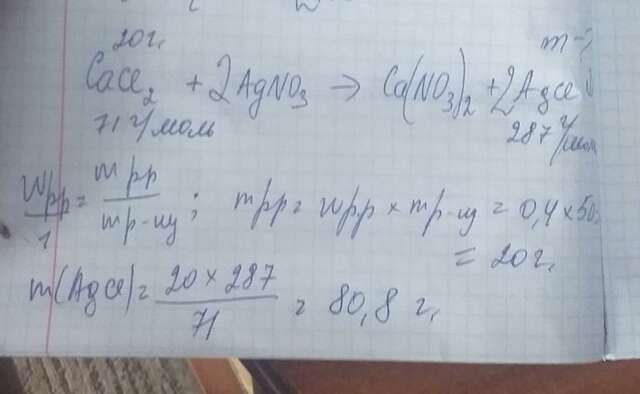 20г,
m-?
CaCl₂ + 2AgNO₃ → Ca(NO₃)₂ + 2AgCl↓
71 г/моль
287 г/моль
Wрр/1 = mрр/mр-ну; mрр = Wрр × mр-ну = 0,4 × 50
= 20г,
m(AgCl) = 20 × 287/71 = 80,8 г,